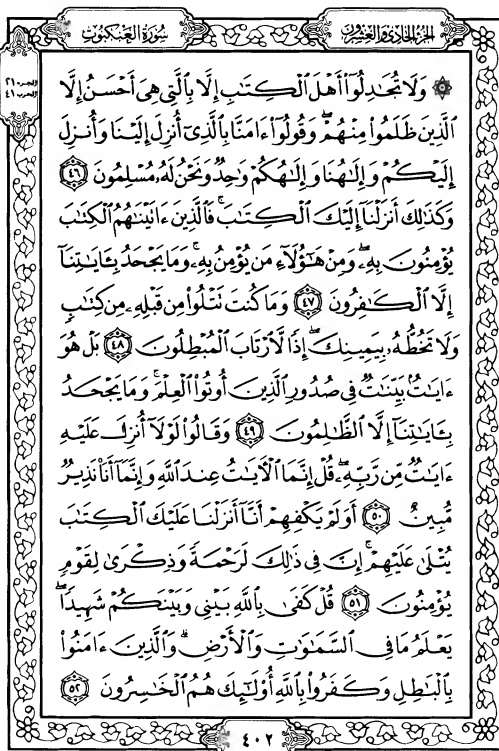 الجزء الحادي والعشرون
سُورَةُ العَنْكَبُوت
الجزء ٢١
الحزب ٤١
۞ وَلَا تُجَٰدِلُوٓا۟ أَهْلَ ٱلْكِتَٰبِ إِلَّا بِٱلَّتِى هِىَ أَحْسَنُ إِلَّا
ٱلَّذِينَ ظَلَمُوا۟ مِنْهُمْ ۖ وَقُولُوٓا۟ ءَامَنَّا بِٱلَّذِىٓ أُنزِلَ إِلَيْنَا وَأُنزِلَ
إِلَيْكُمْ وَإِلَٰهُنَا وَإِلَٰهُكُمْ وَٰحِدٌ وَنَحْنُ لَهُۥ مُسْلِمُونَ ٤٦
وَكَذَٰلِكَ أَنزَلْنَآ إِلَيْكَ ٱلْكِتَٰبَ ۚ فَٱلَّذِينَ ءَاتَيْنَٰهُمُ ٱلْكِتَٰبَ
يُؤْمِنُونَ بِهِۦ ۖ وَمِنْ هَٰٓؤُلَآءِ مَن يُؤْمِنُ بِهِۦ ۚ وَمَا يَجْحَدُ بِـَٔايَٰتِنَآ
إِلَّا ٱلْكَٰفِرُونَ ٤٧ وَمَا كُنتَ تَتْلُوا۟ مِن قَبْلِهِۦ مِن كِتَٰبٍ
وَلَا تَخُطُّهُۥ بِيَمِينِكَ ۖ إِذًا لَّٱرْتَابَ ٱلْمُبْطِلُونَ ٤٨ بَلْ هُوَ
ءَايَٰتٌۢ بَيِّنَٰتٌ فِى صُدُورِ ٱلَّذِينَ أُوتُوا۟ ٱلْعِلْمَ ۚ وَمَا يَجْحَدُ
بِـَٔايَٰتِنَآ إِلَّا ٱلظَّٰلِمُونَ ٤٩ وَقَالُوا۟ لَوْلَآ أُنزِلَ عَلَيْهِ
ءَايَٰتٌ مِّن رَّبِّهِۦ ۖ قُلْ إِنَّمَا ٱلْـَٔايَٰتُ عِندَ ٱللَّهِ وَإِنَّمَآ أَنَا۠ نَذِيرٌ
مُّبِينٌ ٥٠ أَوَلَمْ يَكْفِهِمْ أَنَّآ أَنزَلْنَا عَلَيْكَ ٱلْكِتَٰبَ
يُتْلَىٰ عَلَيْهِمْ ۚ إِنَّ فِى ذَٰلِكَ لَرَحْمَةً وَذِكْرَىٰ لِقَوْمٍ
يُؤْمِنُونَ ٥١ قُلْ كَفَىٰ بِٱللَّهِ بَيْنِى وَبَيْنَكُمْ شَهِيدًا ۖ
يَعْلَمُ مَا فِى ٱلسَّمَٰوَٰتِ وَٱلْأَرْضِ ۗ وَٱلَّذِينَ ءَامَنُوا۟
بِٱلْبَٰطِلِ وَكَفَرُوا۟ بِٱللَّهِ أُو۟لَٰٓئِكَ هُمُ ٱلْخَٰسِرُونَ ٥٢
٤٠٢